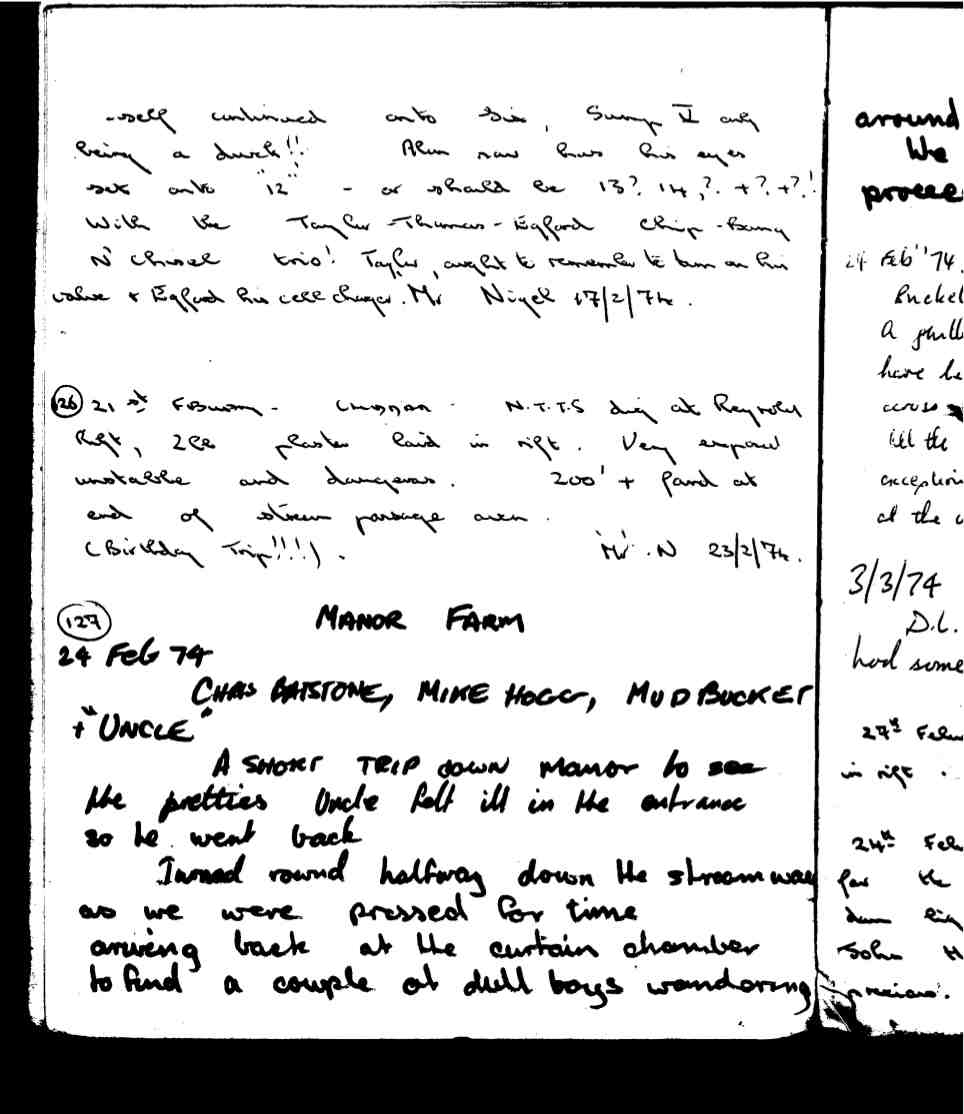 -self continued onto six, Sump V only
being a duck!! Alan now has his eyes
set onto "12" - or should be 13? 14,? +? +?!
With the Taylor-Thomas-Egford Chip-Bang
N' Chisel trio! Taylor, ought to remember to turn on his
valve + Egford his cell charger. Mr Nigel 17/2/74.
126 21st - N.T.T.S dig at Reynolds
Rift, 2lb plaster laid in rift. Very
unstable and dangerous. 200' + found at
end of stream passage aven.
(Birthday Trip!!!). 'Mr'. N 23/2/74.
127 MANOR FARM
24 Feb 74
CHRIS BATSTONE, MIKE HOGG, MUDBUCKET
+ "UNCLE"
A SHORT TRIP down Manor to see
the pretties Uncle felt ill in the entrance
so he went back
Turned round halfway down the streamway
as we were pressed for time
arriving back at the curtain chamber
to find a couple of dull boys wandoring
around
We
procee
24 Feb '74.
Bucket
A
have be
across
till the
exception
at the
3/3/74
D.L.
had some
27th Febr
in rift.
24th Feb
for the
John H
precious.